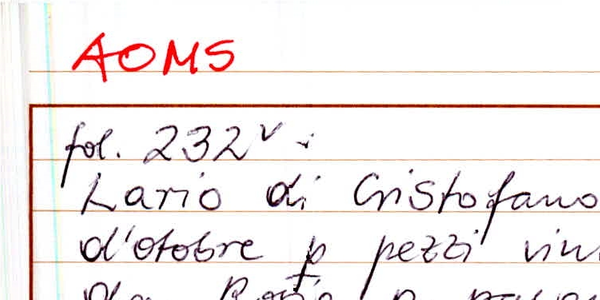 AOMS
fol. 232v
Lario di Cristofano
d'otobre p pezzi